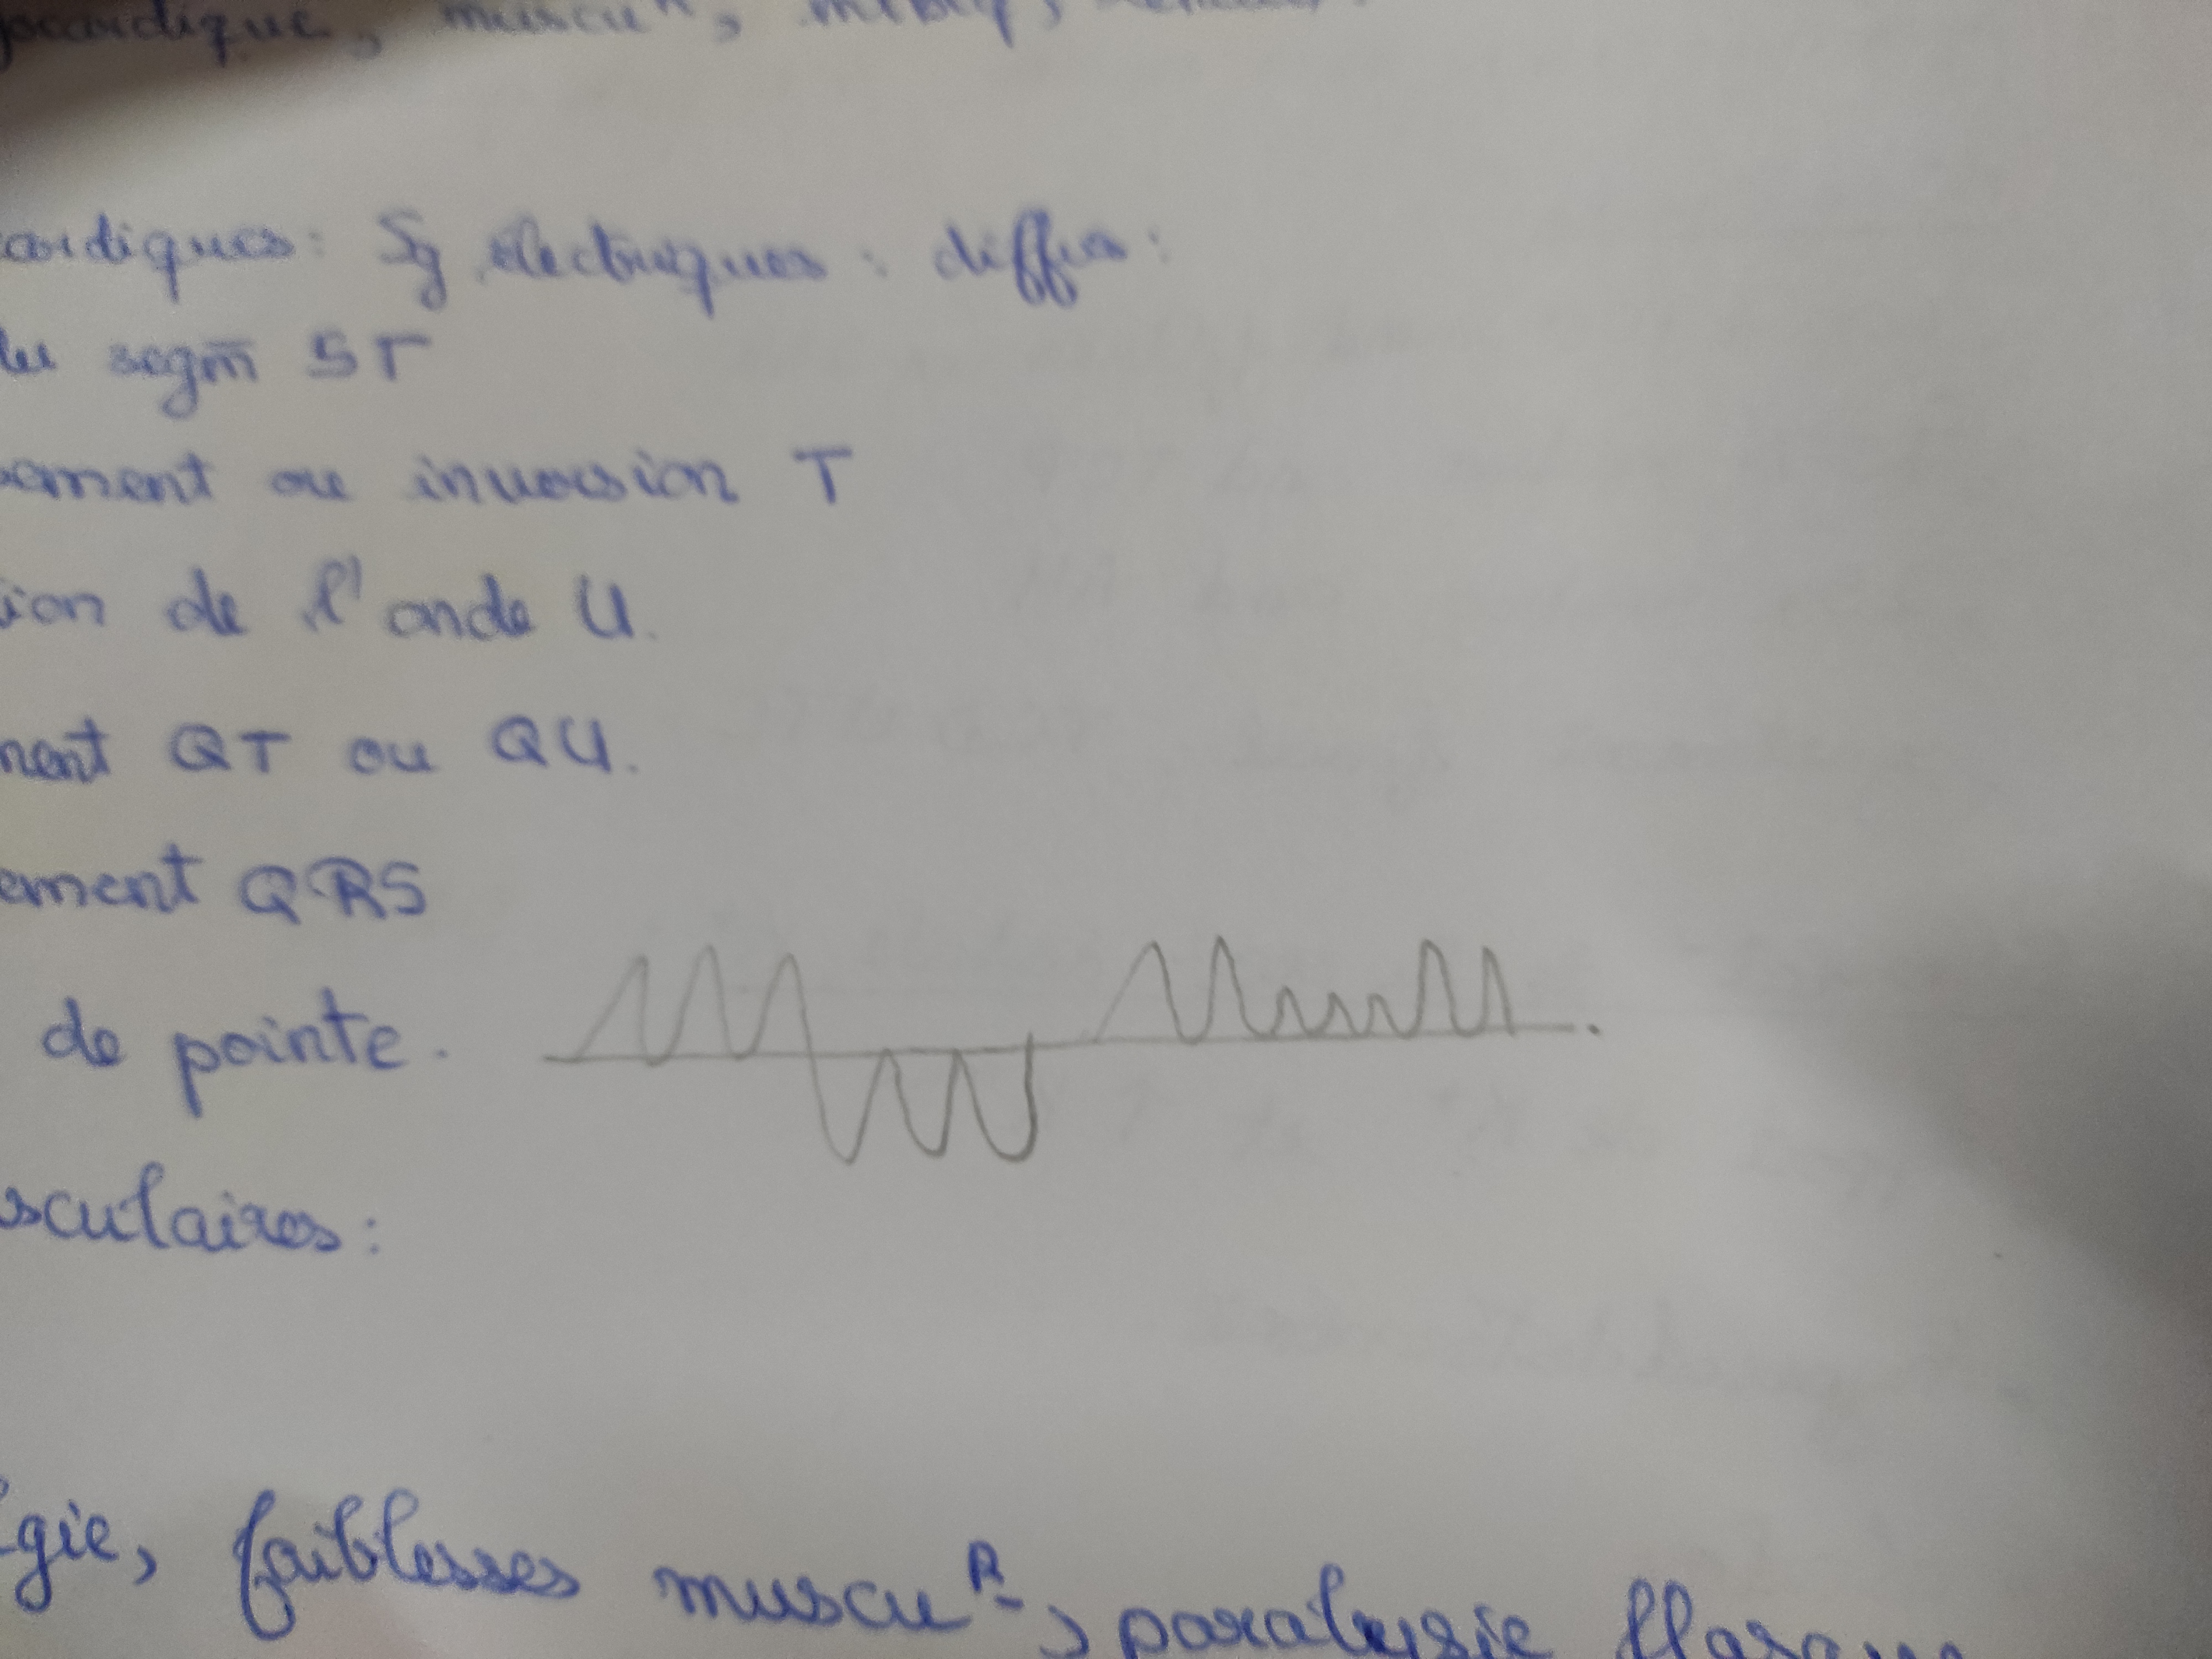 cardiques: Sg électriques: diffus:
segm̄ ST
ement ou inversion T
ion de l'onde U.
ment QT ou QU.
ement QRS
de pointe.
sculaires:
gie, faiblesses muscuR, paralysie flasque